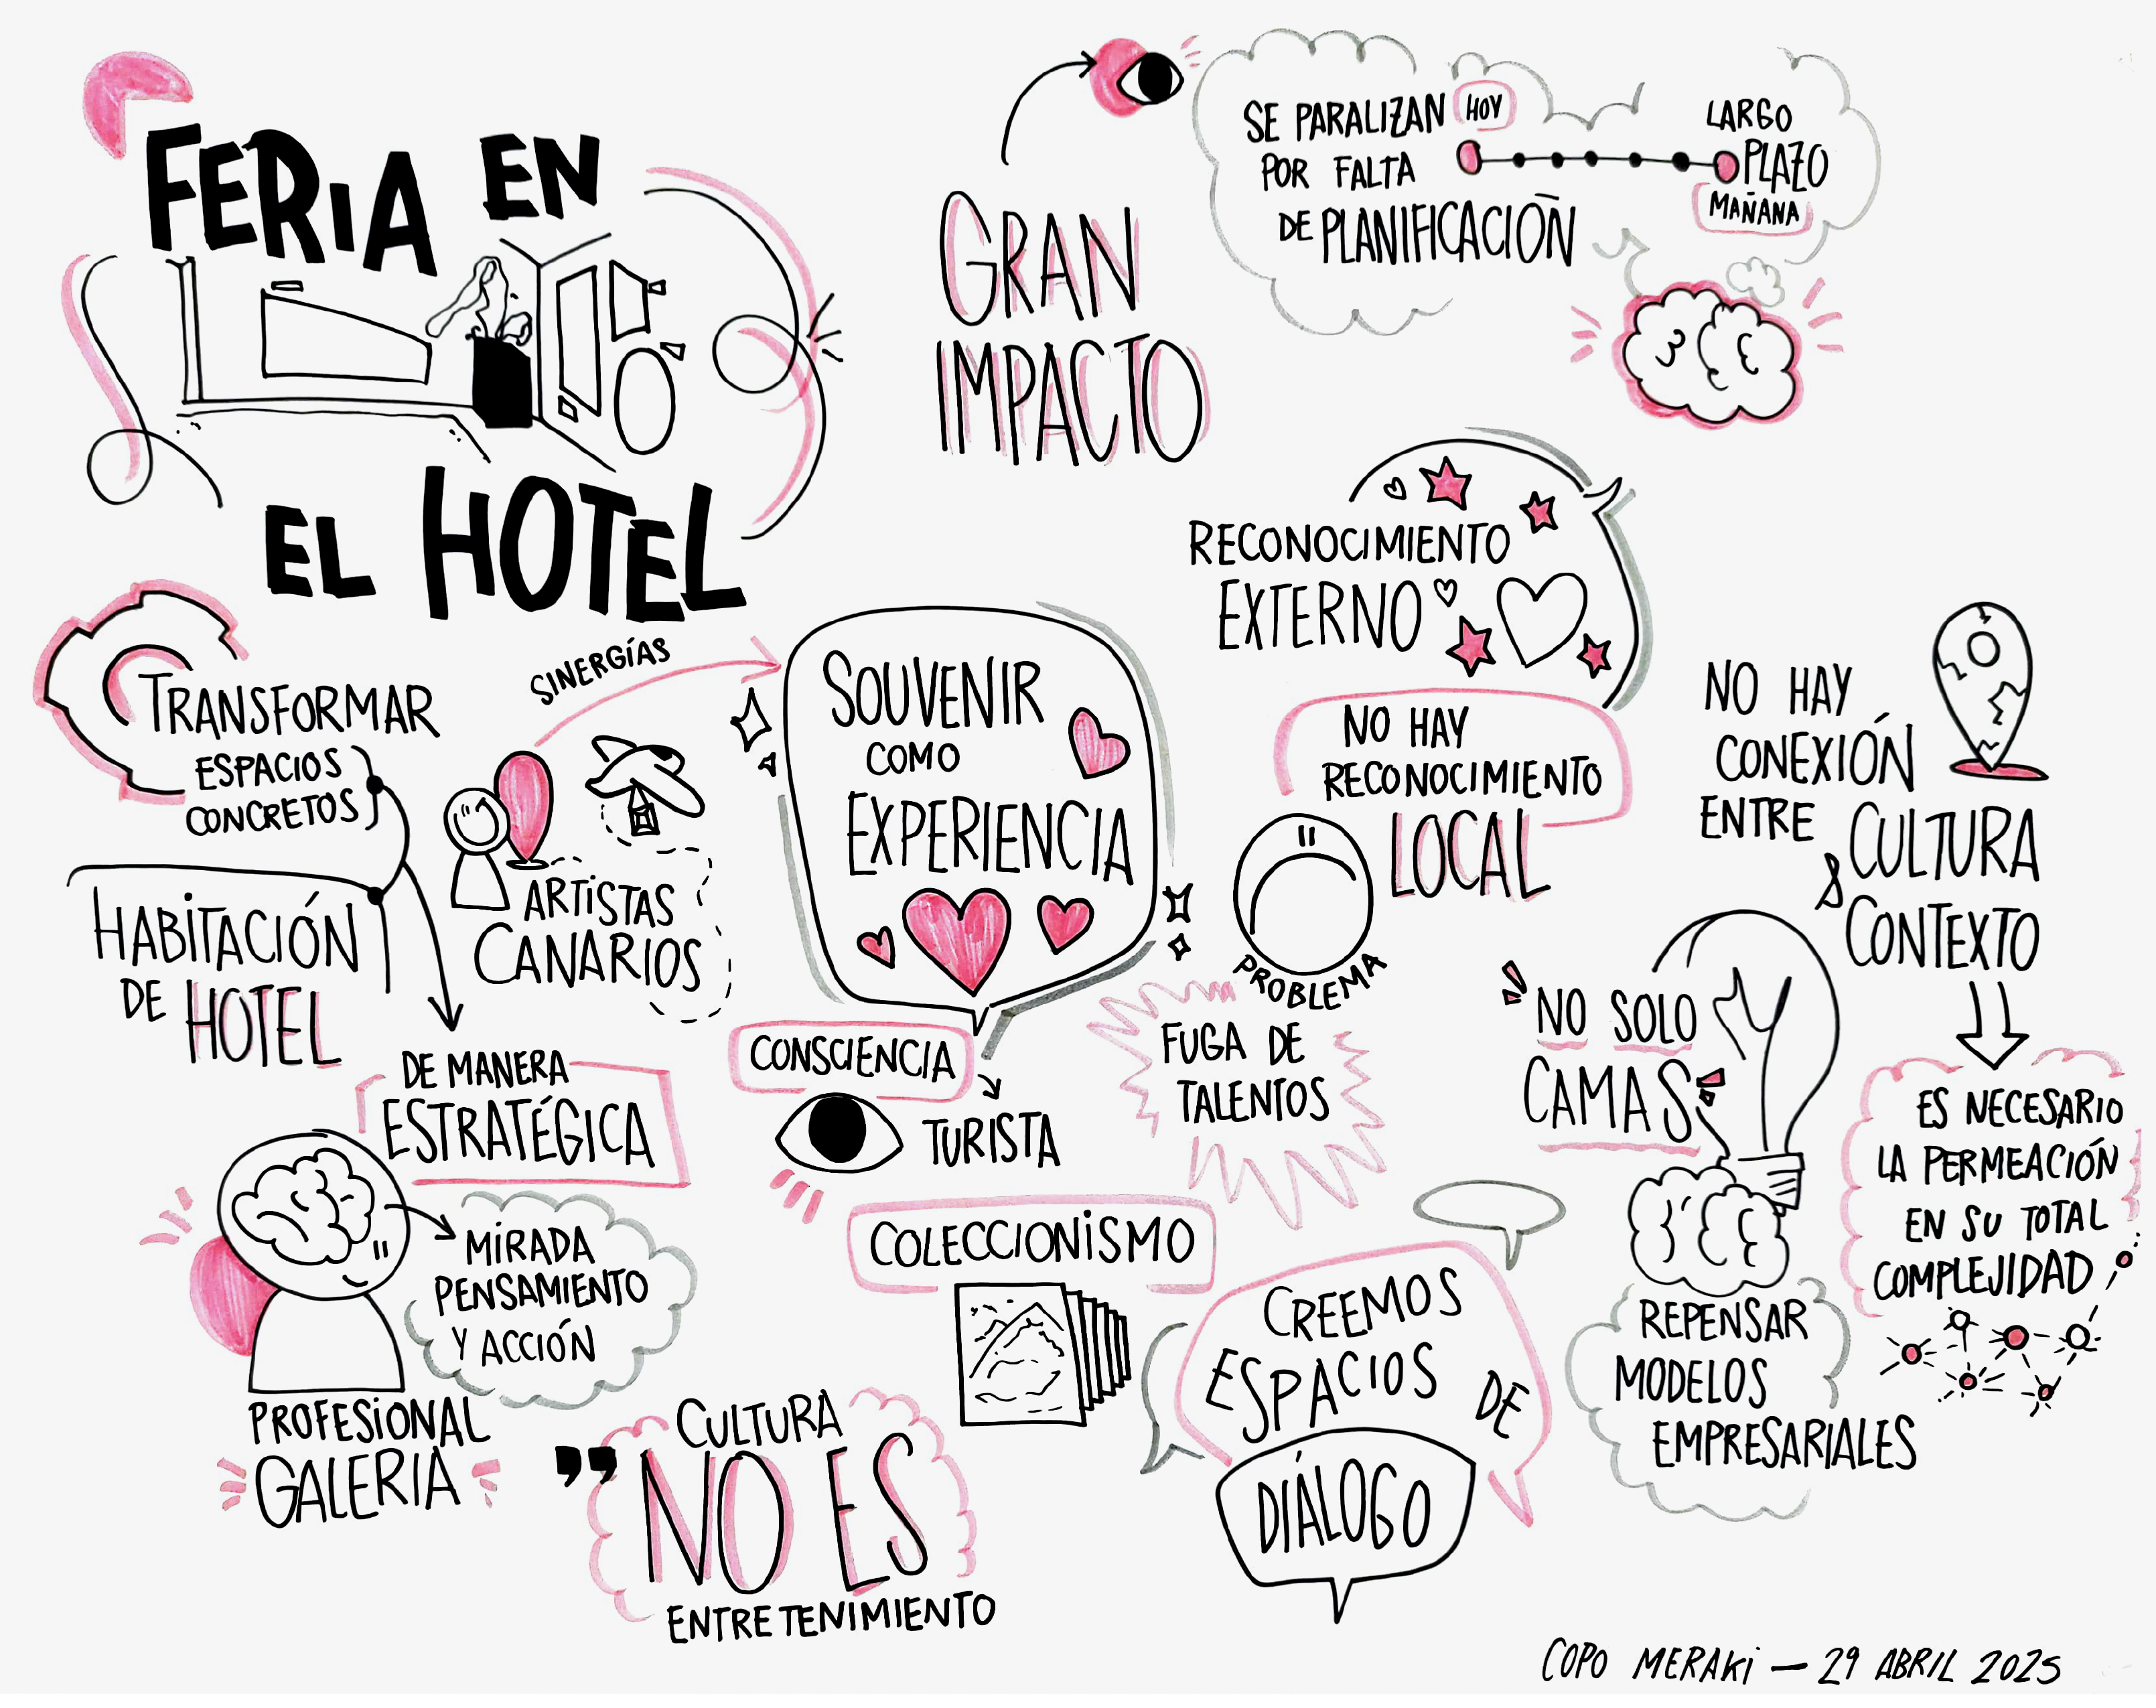 FERIA EN
EL HOTEL
GRAN
IMPACTO
SE PARALIZAN HOY
POR FALTA
DE PLANIFICACIÓN
LARGO
PLAZO
MAÑANA
TRANSFORMAR
ESPACIOS
CONCRETOS
HABITACIÓN
DE HOTEL
SINERGÍAS
ARTISTAS
CANARIOS
DE MANERA
ESTRATÉGICA
MIRADA
PENSAMIENTO
Y ACCIÓN
PROFESIONAL
GALERIA
SOUVENIR
COMO
EXPERIENCIA
CONSCIENCIA
TURISTA
COLECCIONISMO
" CULTURA
NO ES
ENTRETENIMIENTO
RECONOCIMIENTO
EXTERNO
NO HAY
RECONOCIMIENTO
LOCAL
PROBLEMA
FUGA DE
TALENTOS
CREEMOS
ESPACIOS DE
DIÁLOGO
NO HAY
CONEXIÓN
ENTRE CULTURA
& CONTEXTO
NO SOLO
CAMAS
REPENSAR
MODELOS
EMPRESARIALES
ES NECESARIO
LA PERMEACIÓN
EN SU TOTAL
COMPLEJIDAD
COPO MERAKI — 29 ABRIL 2025